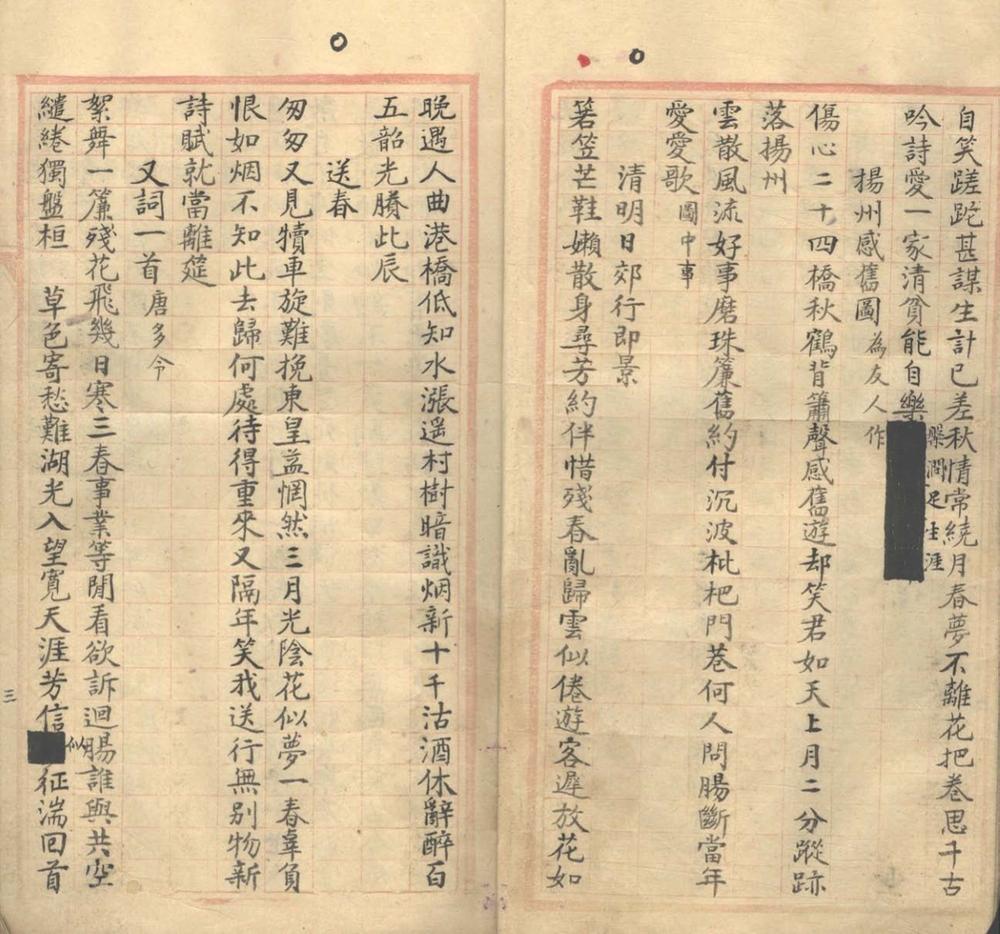 自笑蹉跎甚謀生計已差秋情常繞月春夢不離花把卷思千古
吟詩愛一家清貧能自樂
槃澗足生涯
揚州感舊圖為友人作
傷心二十四橋秋鶴背簫聲感舊遊却笑君如天上月二分蹤跡
落揚州
雲散風流好事磨珠簾舊約付沉波枇杷門巷何人問腸斷當年
愛愛歌圖中事
清明日郊行即景
箬笠芒鞋嬾散身尋芳約伴惜殘春亂歸雲似倦遊客遲放花如
晚遇人曲港橋低知水漲遥村樹暗識烟新十千沽酒休辭醉百
五韶光賸此辰
送春
匆匆又見犢車旋難挽東皇益惘然三月光陰花似夢一春辜負
恨如烟不知此去歸何處待得重來又隔年笑我送行無别物新
詩賦就當離筵
又詞一首唐多令
絮舞一簾殘花飛幾日寒三春事業等閒看欲訴迴腸誰與共空
繾綣獨盤桓 草色寄愁難湖光入望寬天涯芳信似征湍回首
三